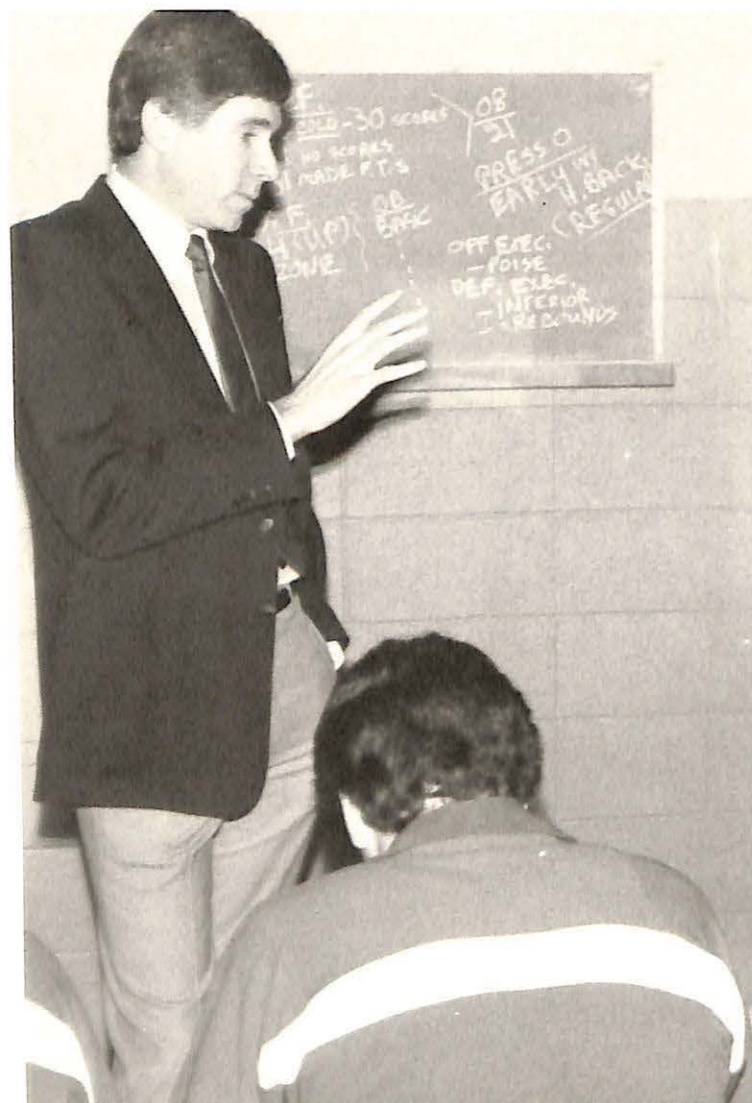 F
-30 SCORES
NO SCORES
MADE F.T.S
F
(UP)
ZONE
BASIC
08
21
PRESS O
EARLY W/
W. BACK
(REGULAR
OFF EXEC.
- POISE
DEF. EXEC.
- INTERIOR
I. REBOUNDS